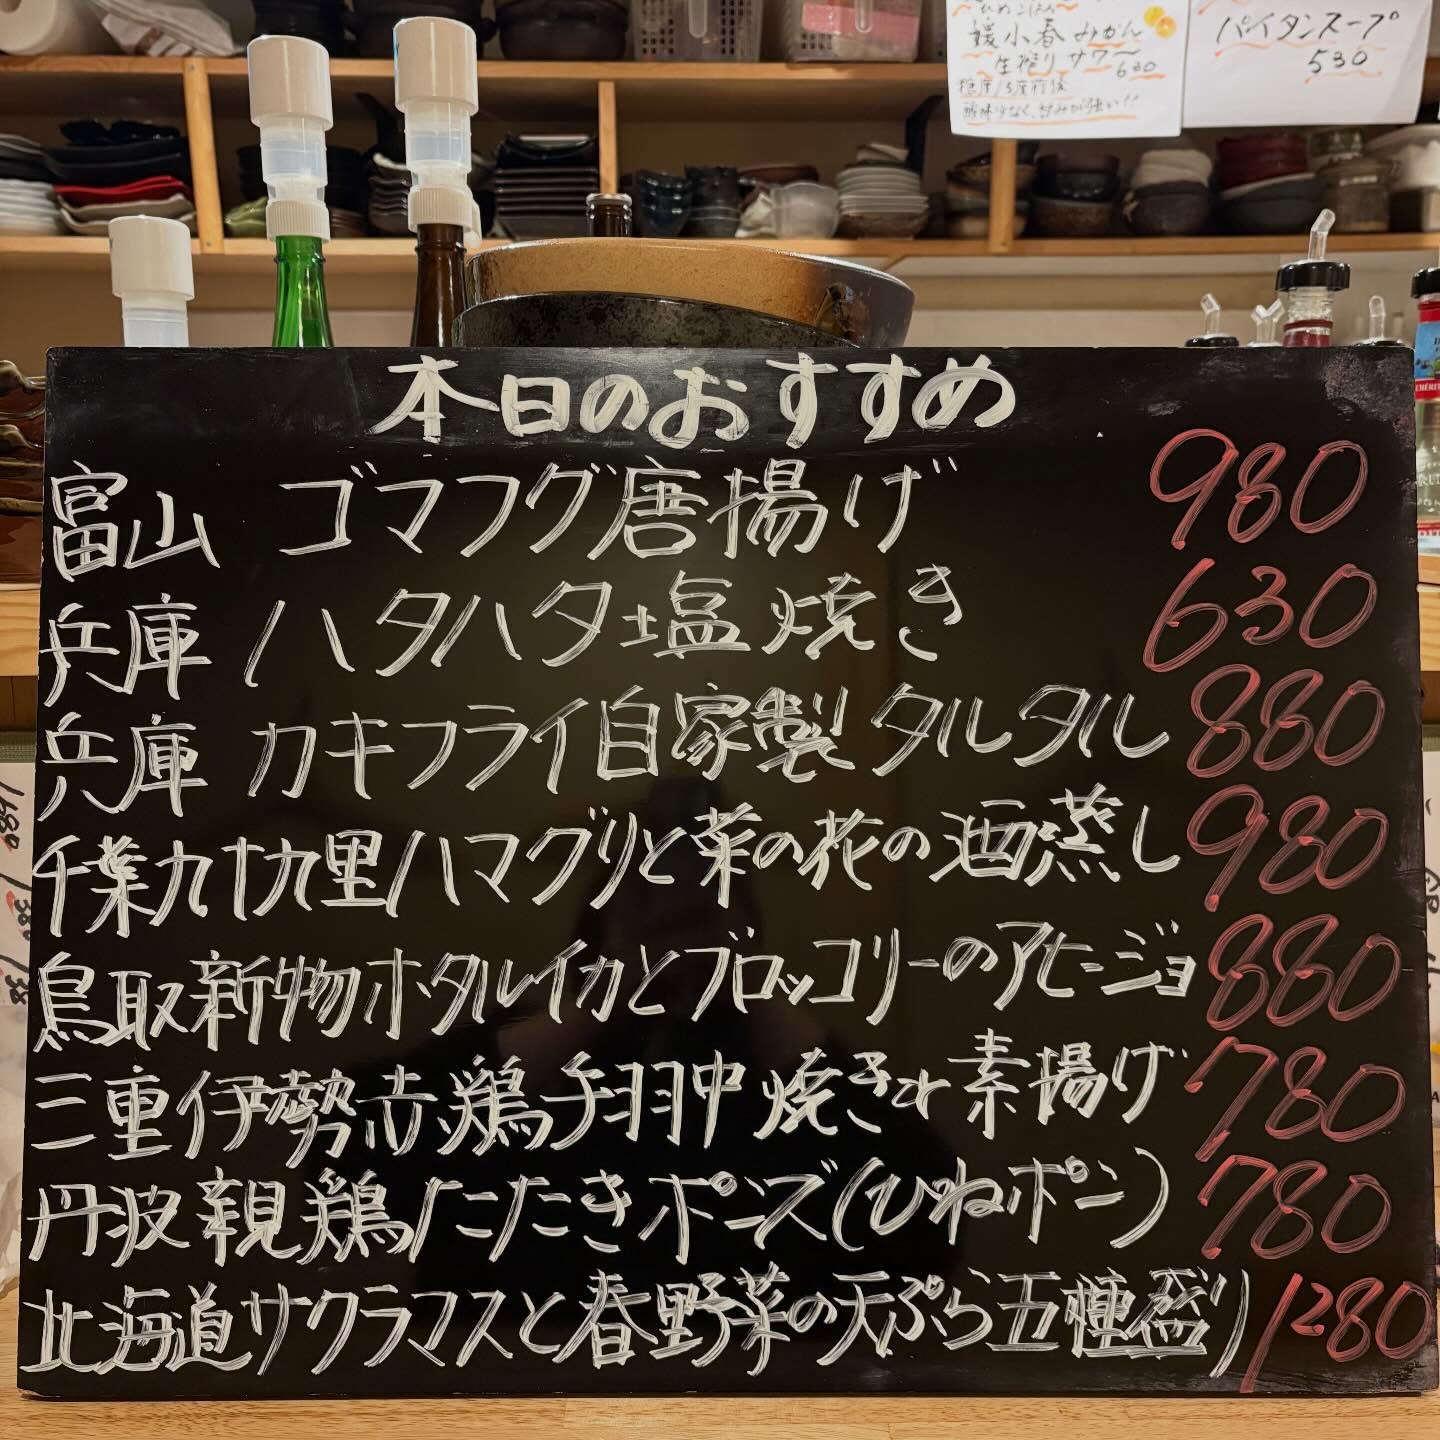 媛小春みかん
生搾りサワー
630
パイタンスープ
530
本日のおすすめ
富山 ゴマフグ唐揚げ 980
兵庫 ハタハタ塩焼き 630
兵庫 カキフライ自家製タルタル 880
千葉九十九里ハマグリと菜の花の酒蒸し 980
鳥取新物ホタルイカとブロッコリーのアヒージョ 880
三重伊勢赤鶏手羽中焼きor素揚げ 780
丹波親鶏たたきポンズ(ひねポン) 780
北海道サクラマスと春野菜の天ぷら五種盛り 1280